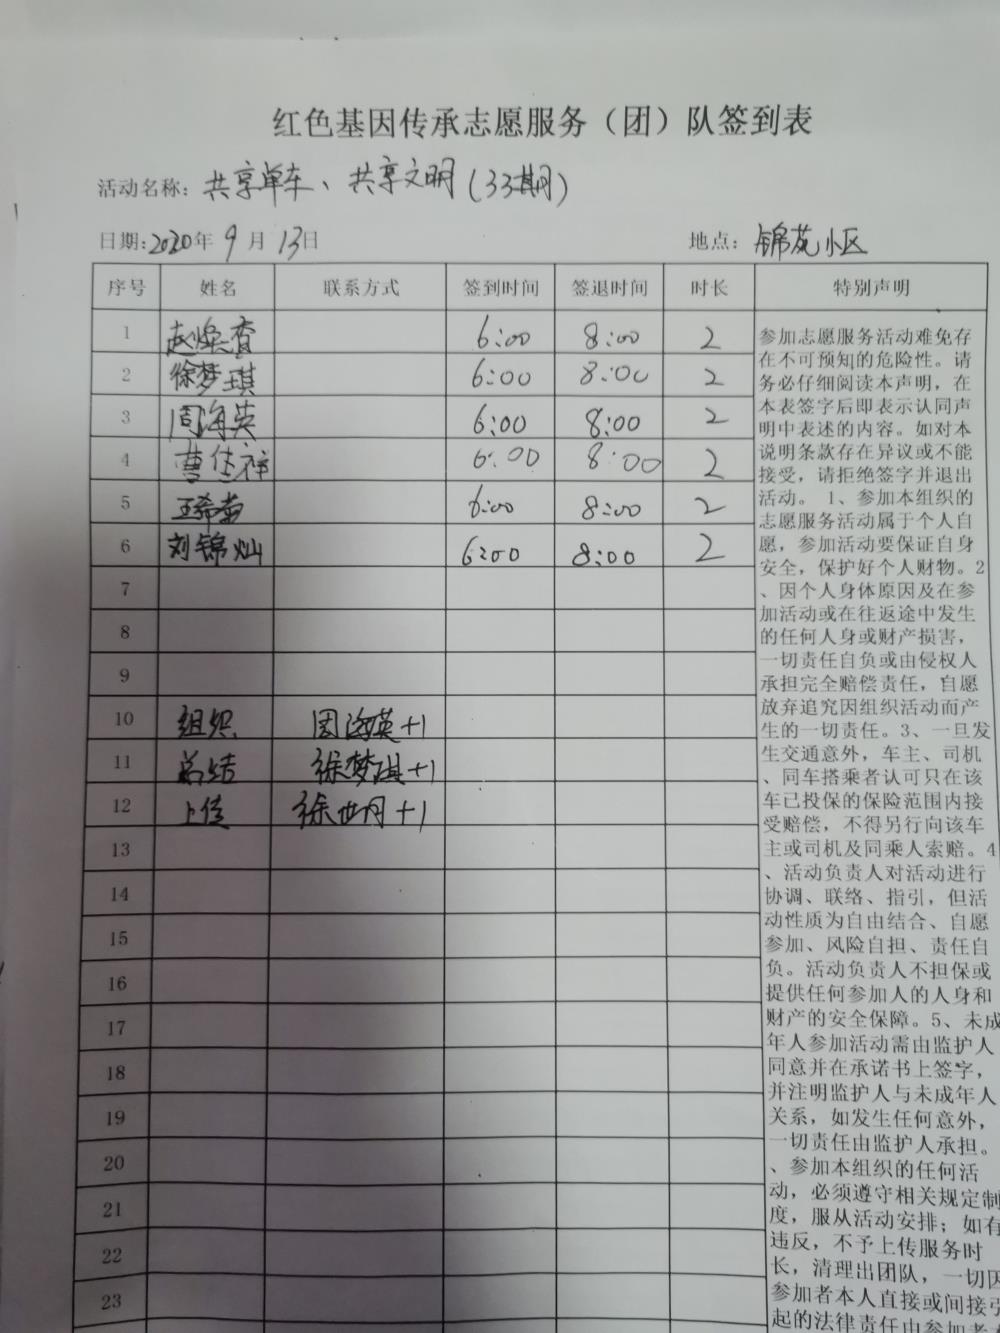 红色基因传承志愿服务（团）队签到表
活动名称：共享单车、共享文明（33期）
日期：2020年9月13日 地点：锦苑小区
序号 姓名 联系方式 签到时间 签退时间 时长 特别声明
1 赵焕香 6:00 8:00 2
2 徐梦琪 6:00 8:00 2
3 周海英 6:00 8:00 2
4 曹佳祥 6:00 8:00 2
5 王希菊 6:00 8:00 2
6 刘锦灿 6:00 8:00 2
7
8
9
10 组织 周海英+1
11 总结 徐梦琪+1
12 上传 徐世丹+1
13
14
15
16
17
18
19
20
21
22
23
参加志愿服务活动难免存
在不可预知的危险性。请
务必仔细阅读本声明，在
本表签字后即表示认同声
明中表述的内容。如对本
说明条款存在异议或不能
接受，请拒绝签字并退出
活动。 1、参加本组织的
志愿服务活动属于个人自
愿，参加活动要保证自身
安全，保护好个人财物。2
、因个人身体原因及在参
加活动或在往返途中发生
的任何人身或财产损害，
一切责任自负或由侵权人
承担完全赔偿责任，自愿
放弃追究因组织活动而产
生的一切责任。3、一旦发
生交通意外，车主、司机
、同车搭乘者认可只在该
车已投保的保险范围内接
受赔偿，不得另行向该车
主或司机及同乘人索赔。4
、活动负责人对活动进行
协调、联络、指引，但活
动性质为自由结合、自愿
参加、风险自担、责任自
负。活动负责人不担保或
提供任何参加人的人身和
财产的安全保障。5、未成
年人参加活动需由监护人
同意并在承诺书上签字，
并注明监护人与未成年人
关系，如发生任何意外，
一切责任由监护人承担。
、参加本组织的任何活
动，必须遵守相关规定制
度，服从活动安排；如有
违反，不予上传服务时
长，清理出团队，一切因
参加者本人直接或间接引
起的法律责任由参加者